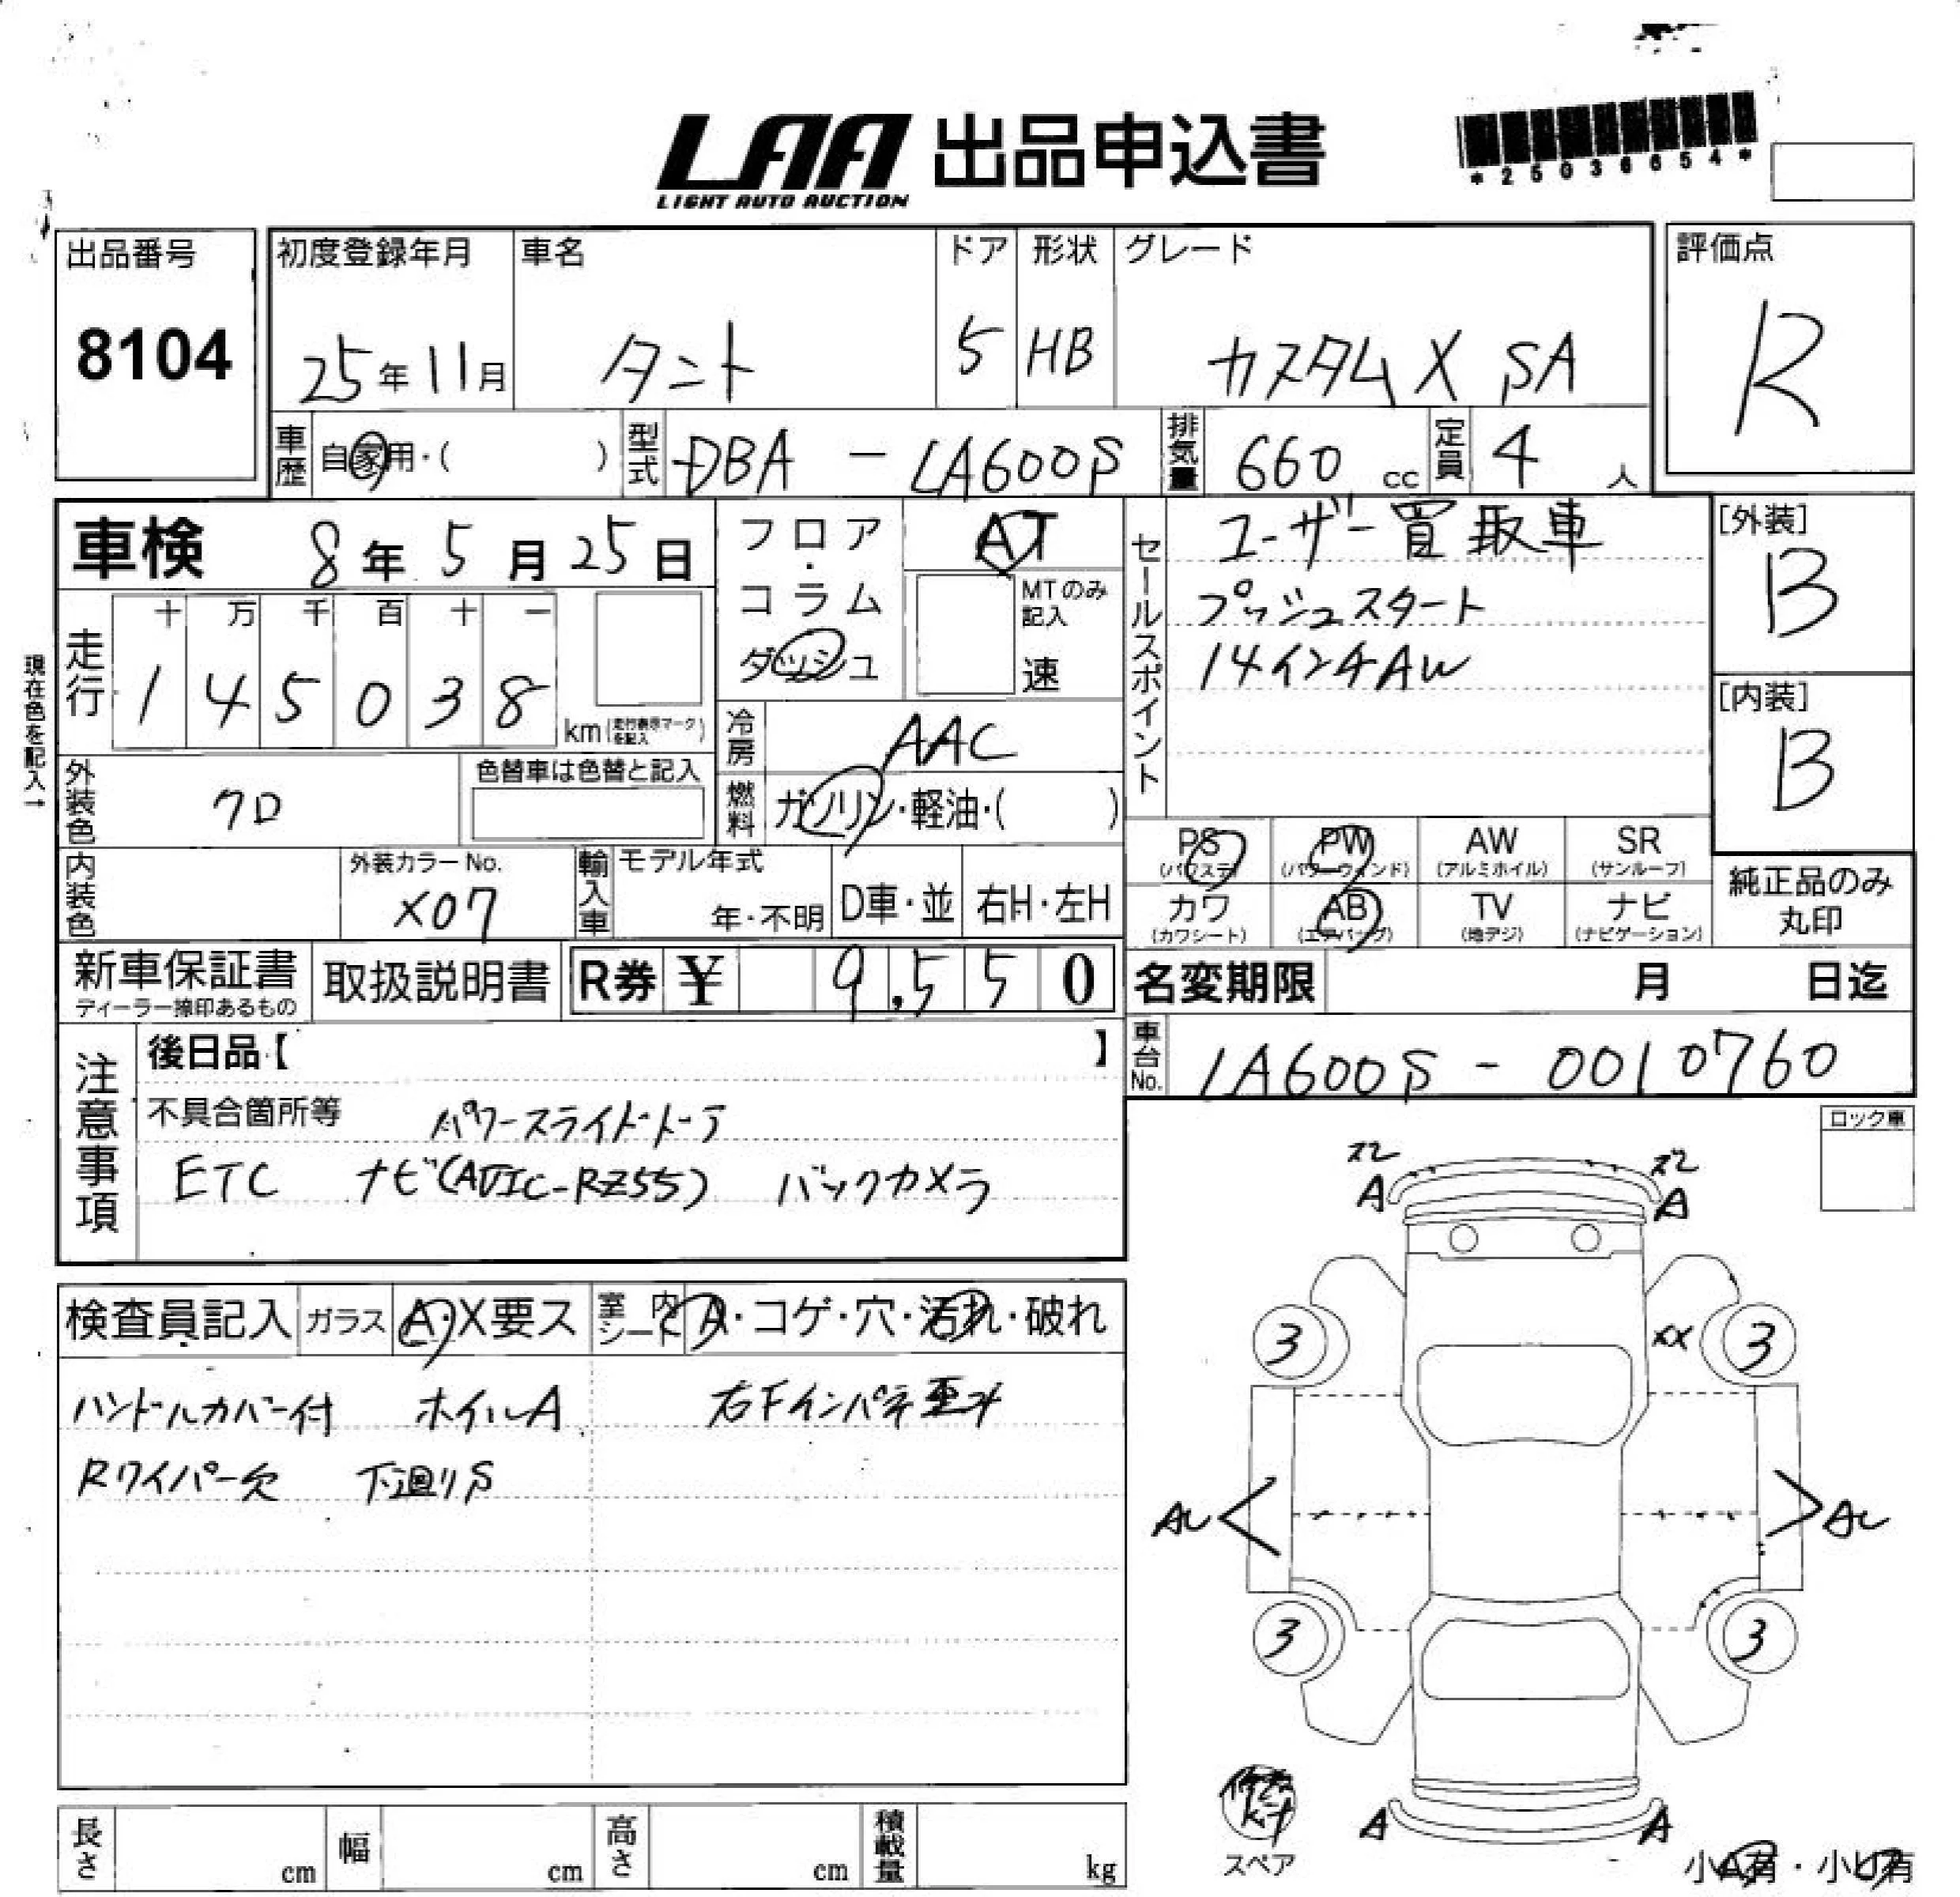 LAA 出品申込書
LIGHT AUTO AUCTION
*25036654*
出品番号
8104
初度登録年月
25年11月
車名
タント
ドア
5
形状
HB
グレード
カスタムX SA
評価点
R
車歴 自家用・( )
型式 DBA - LA600S
排気量 660 cc
定員 4 人
車検 8年 5月 25日
フロア・コラム
ダッシュ
AT
MTのみ記入
速
セールスポイント
ユーザー買取車
プッシュスタート
14インチAW
[外装]
B
[内装]
B
現在色を記入→
走行
十 万 千 百 十 一
1 4 5 0 3 8
km(走行表示マークを記入)
冷房 AAC
燃料 ガソリン・軽油・( )
外装色 クロ
色替車は色替と記入
内装色
外装カラーNo.
X07
輸入車
モデル年式
年・不明
D車・並
右H・左H
PS (パワステ)
PW (パワーウィンド)
AW (アルミホイル)
SR (サンルーフ)
カワ (カワシート)
AB (エアバッグ)
TV (地デジ)
ナビ (ナビゲーション)
純正品のみ
丸印
新車保証書
ディーラー捺印あるもの
取扱説明書
R券 ¥ 9,550
名変期限 月 日迄
車台No. LA600S - 0010760
注意事項
後日品【 】
不具合箇所等 パワースライドドア
ETC ナビ(AVIC-RZ55) バックカメラ
ロック車
検査員記入
ガラス A・X要ス
室内シート A・コゲ・穴・汚れ・破れ
ハンドルカバー付 ホイルA
右Fインパネ歪み
Rワイパー欠 下廻りS
ズレ A
ズレ A
3
XX
3
AU
AU
3
3
修理kit
スペア
A
A
小A有・小U有
長さ cm
幅 cm
高さ cm
積載量 kg